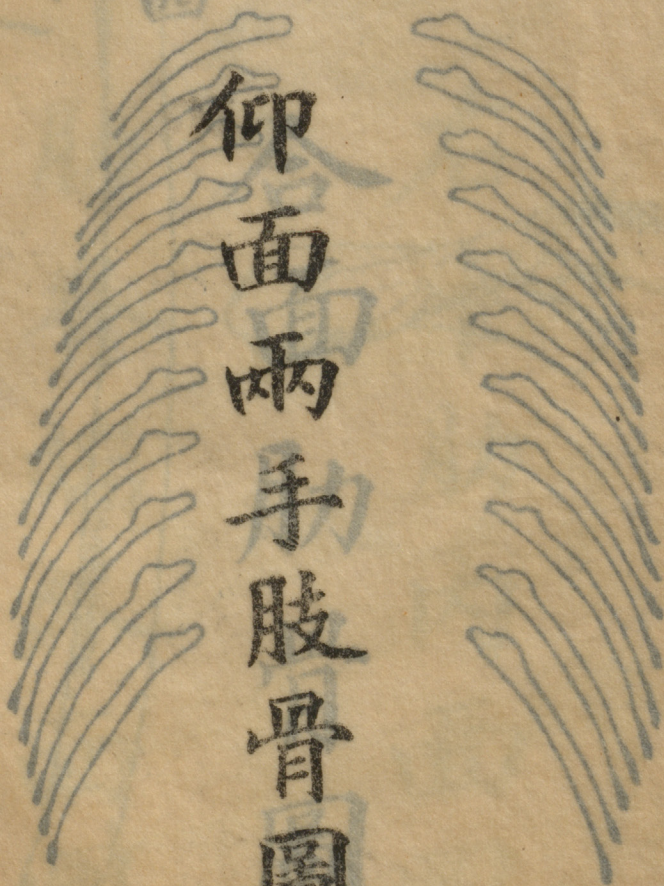 仰面兩手肢骨圖